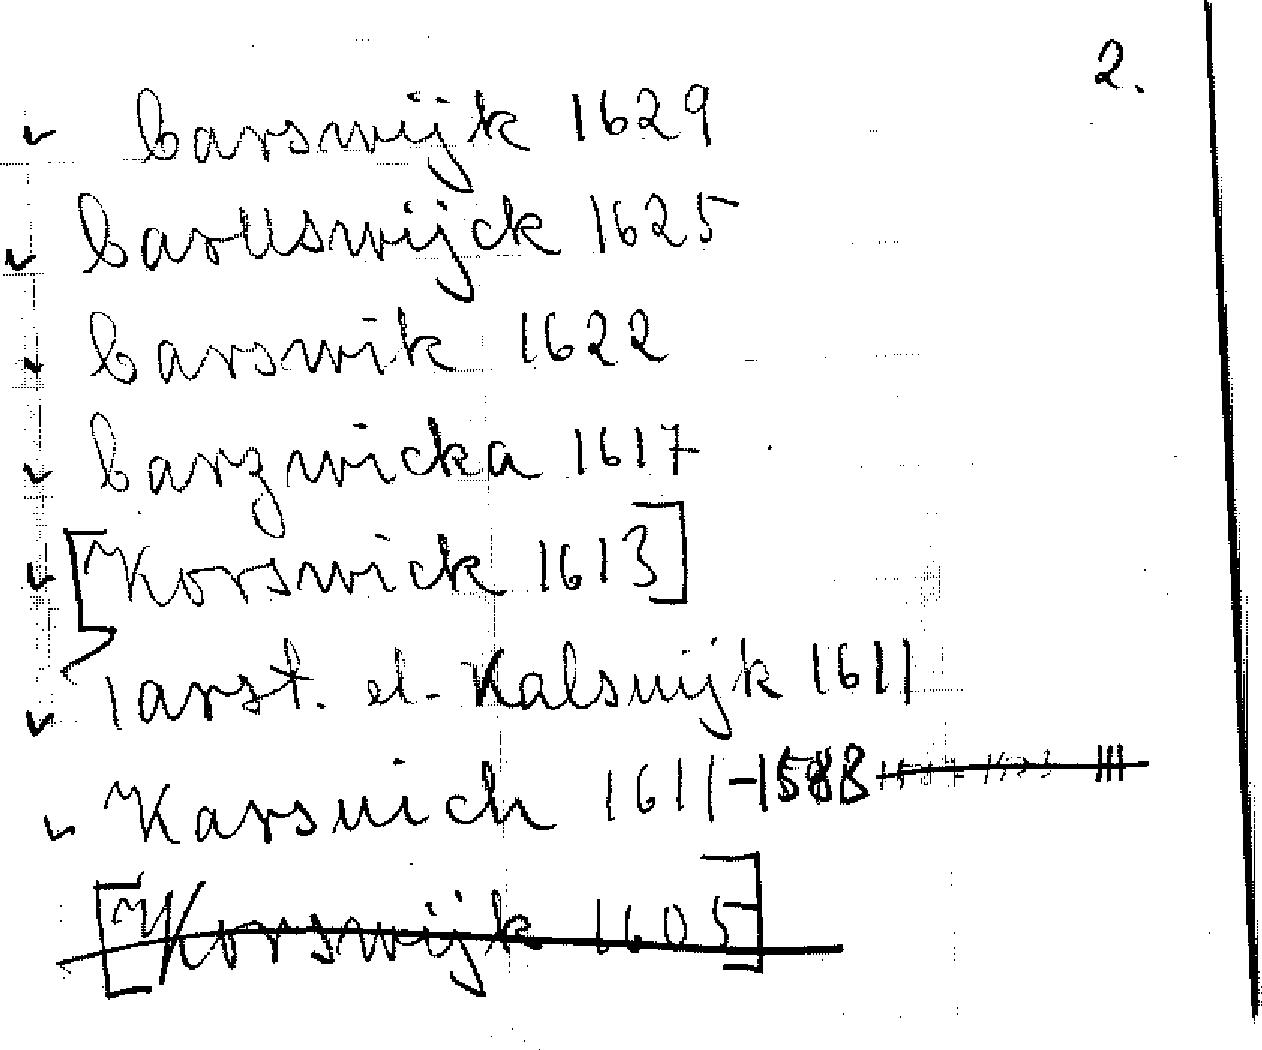 2.
Carswijk 1629
Carllswijck 1625
Carswik 1622
Carzwicka 1617
[Korswick 1613]
Karst. el. Kalswijk 1611
Karswich 1611-1588
[Korswijk 1605]